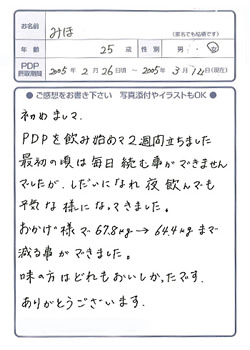 お名前 みほ
(匿名でも結構です)
年齢 25歳 性別 男・女
PDP摂取期間 2005年2月26日頃 ~ 2005年3月14日(現在)
●ご感想をお書き下さい 写真添付やイラストもOK●
初めまして。
PDPを飲み始めて2週間立ちました
最初の頃は毎日続む事ができません
でしたが、しだいになれ夜飲んでも
平気な様になってきました。
おかげ様で67.8kg→64.4kgまで
減る事ができました。
味の方はどれもおいしかったです。
ありがとうございます。